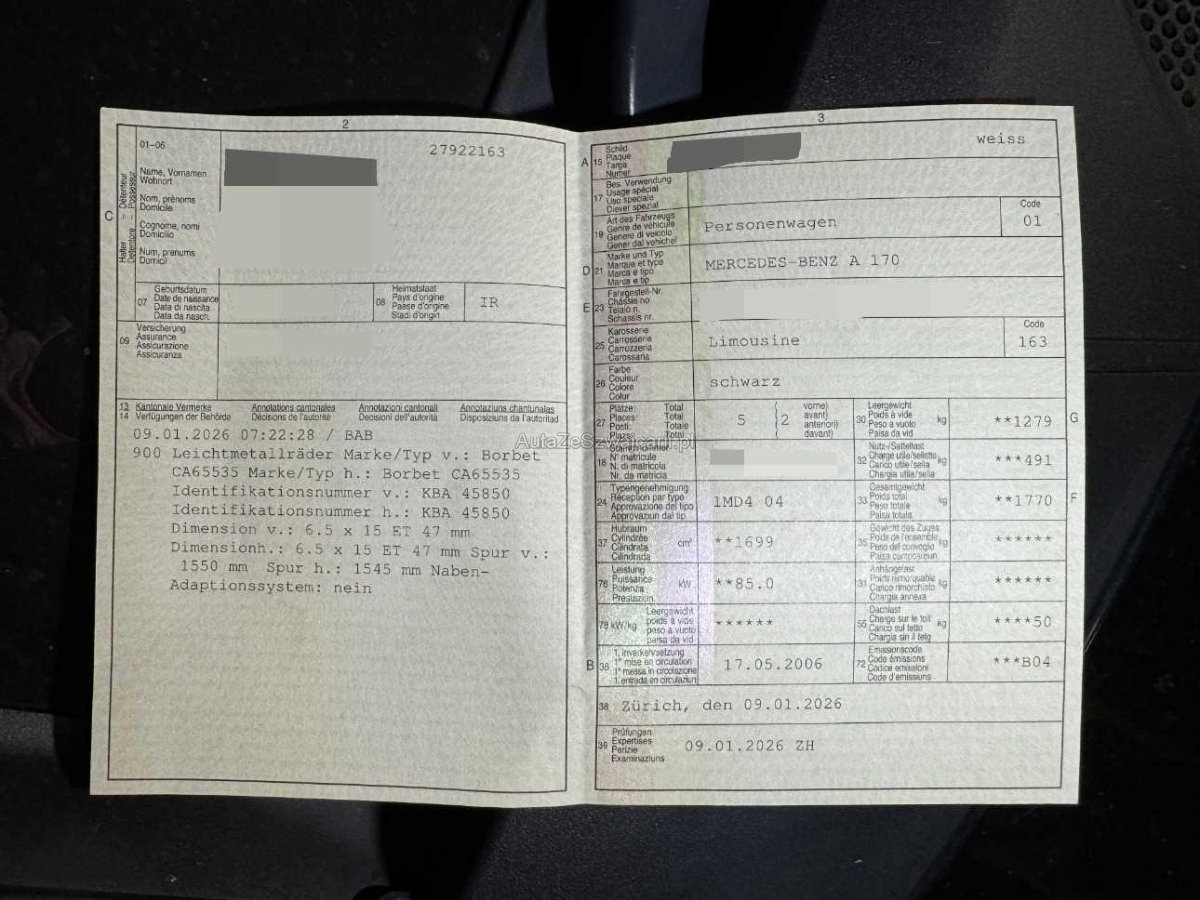 2
01-06
27922163
Halter - Détenteur
Detentore - Possessur
C
Name, Vornamen
Wohnort
Nom, prénoms
Domicile
Cognome, nomi
Domicilio
Num, prenums
Domicil
07
Geburtsdatum
Date de naissance
Data di nascita
Data da nasch.
08
Heimatstaat
Pays d'origine
Paese d'origine
Stadi d'origin
IR
09
Versicherung
Assurance
Assicurazione
Assicuranza
13 Kantonale Vermerke Annotations cantonales Annotazioni cantonali Annotaziuns chantunalas
14 Verfügungen der Behörde Décisions de l'autorité Decisioni dell'autorità Disposiziuns da l'autoritad
09.01.2026 07:22:28 / BAB
900 Leichtmetallräder Marke/Typ v.: Borbet
CA65535 Marke/Typ h.: Borbet CA65535
Identifikationsnummer v.: KBA 45850
Identifikationsnummer h.: KBA 45850
Dimension v.: 6.5 x 15 ET 47 mm
Dimensionh.: 6.5 x 15 ET 47 mm Spur v.:
1550 mm Spur h.: 1545 mm Naben-
Adaptionssystem: nein
3
A 15
Schild
Plaque
Targa
Numer
weiss
17
Bes. Verwendung
Usage spécial
Uso speciale
Diever spezial
19
Art des Fahrzeugs
Genre de véhicule
Genere di veicolo
Gener dal vehichel
Personenwagen
Code
01
D 21
Marke und Typ
Marque et type
Marca e tipo
Marca e tip
MERCEDES-BENZ A 170
E 23
Fahrgestell-Nr.
Châssis no
Telaio n.
Schassis nr.
25
Karosserie
Carrosserie
Carrozzeria
Carossaria
Limousine
Code
163
26
Farbe
Couleur
Colore
Colur
schwarz
27
Plätze: Total
Places: Total
Posti: Totale
Plazs: Total
5
2
vorne)
avant)
anteriori)
davant)
30
Leergewicht
Poids à vide
Peso a vuoto
Paisa da vid
kg
**1279
G
AutaZeSzwajcarii.pl
18
N° matricule
N. di matricola
Nr. da matricla
32
Nutz-/Sattellast
Charge utile/sellette
Carico utile/sella
Chargia utile/sella
kg
***491
24
Typengenehmigung
Réception par type
Approvazione del tipo
Approvaziun dal tip
1MD4 04
33
Gesamtgewicht
Poids total
Peso totale
Paisa totala
kg
**1770
F
37
Hubraum
Cylindrée
Cilindrata
Cilindrada
cm³
**1699
35
Gewicht des Zuges
Poids de l'ensemble
Peso del convoglio
Paisa cumposiziun
kg
******
76
Leistung
Puissance
Potenza
Prestaziun
kW
**85.0
31
Anhängelast
Poids remorquable
Carico rimorchiato
Chargia annexa
kg
******
78 kW/kg
Leergewicht
poids à vide
peso a vuoto
paisa da vid
******
55
Dachlast
Charge sur le toit
Carico sul tetto
Chargia sin il tetg
kg
****50
B 36
1. Inverkehrsetzung
1re mise en circulation
1a messa in circolazione
1. entrada en circulaziun
17.05.2006
72
Emissionscode
Code émissions
Codice emissioni
Code d'emissiuns
***B04
38 Zürich, den 09.01.2026
39
Prüfungen
Expertises
Perizie
Examinaziuns
09.01.2026 ZH